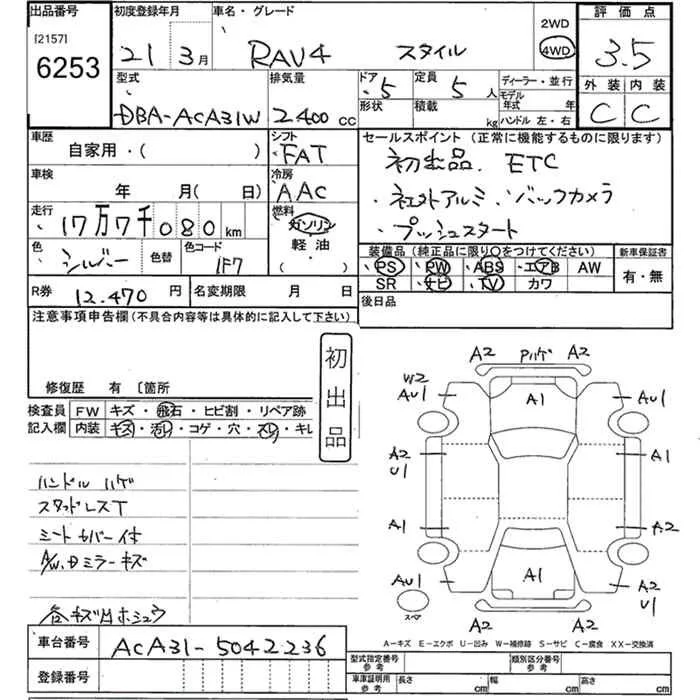 出品番号 初度登録年月 車名・グレード 2WD 評価点
[2157] 6253 21 3月 RAV4 スタイル 4WD 3.5
型式 排気量 ドア 5 定員 5人 ディーラー・並行 外装 内装
DBA-ACA31W 2.400cc 形状 積載 kg モデル年式 年 ハンドル 左・右 C C
車歴 シフト セールスポイント (正常に機能するものに限ります)
自家用・( ) FAT 初出品. ETC
車検 冷房 ・社外アルミ・バックカメラ
年 月( 日) AAC ・プッシュスタート
走行 17万7千080km 燃料 ガソリン
軽油
・( )
色 シルバー 色替 色コード 1F7
装備品 (純正品に限り○をつけてください) 新車保証書
・PS ・PW ・ABS ・エアB AW 有・無
SR ・ナビ ・TV カワ
R券 12.470円 名変期限 月 日 後日品
注意事項申告欄 (不具合内容等は具体的に記入して下さい)
修復歴 有 [箇所
初出品
検査員 FW キズ・飛石・ヒビ割・リペア跡
記入欄 内装 キズ・汚レ・コゲ・穴・スレ・キレ
ハンドル ハゲ
スタッドレスT
シートカバー付
A/W.Dミラーキズ
各キズ凹ホシュウ
A2 Pハゲ A2
W2
AU1 A1 AU1
A2
U1 A1
A1 A2
AU1 A1 A2
U1
スペア A2 A2
A−キズ E−エクボ U−凹み W−補修跡 S−サビ C−腐食 XX−交換済
車台番号 ACA31-5042236
登録番号
型式指定番号 参考 類別区分番号 参考
車庫証明用 参考 長さ cm 幅 cm 高さ cm